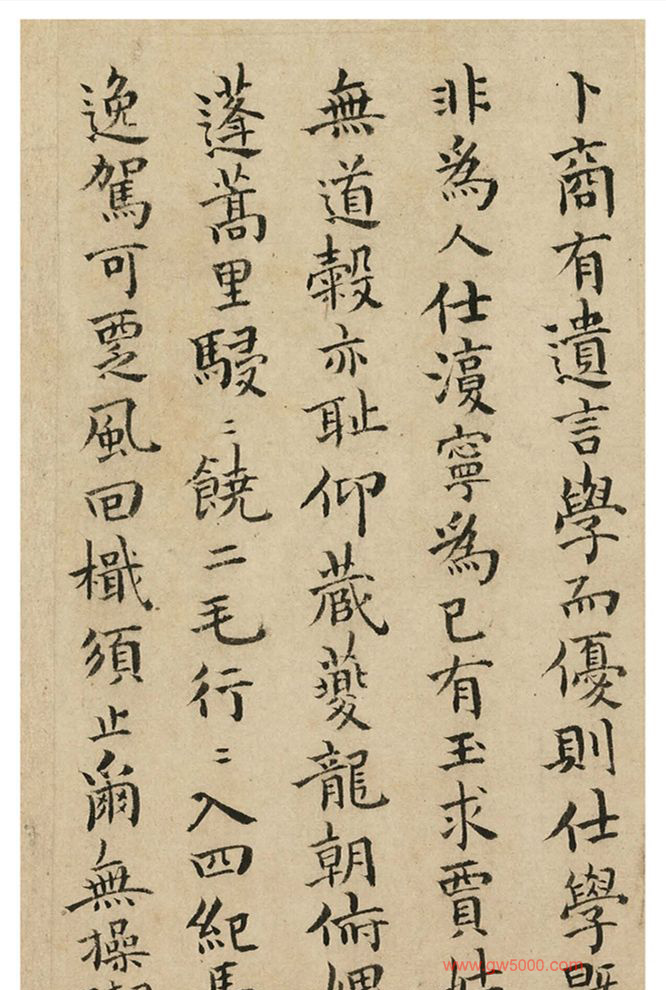 卜商有遺言學而優則仕學既
非爲人仕湏寧爲已有玉求賈
無道糓亦耻仰蔵夔龍朝俯
蓬蒿里駸〻饒二毛行〻入四紀馬
逸駕可覂風回檝須止爾無操
www.gw5000.com